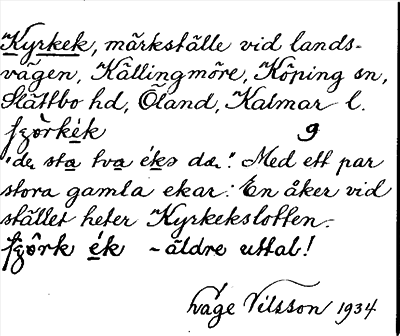 Kyrkek, märkställe vid lands-
vägen, Källingmöre, Köping sn,
Slättbo hd, Öland, Kalmar l.
9
"de sta tva ékə dæ". Med ett par
stora gamla ekar. En åker vid
stället heter Kyrkekslotten.
ék – äldre uttal!
Våge Nilsson 1934